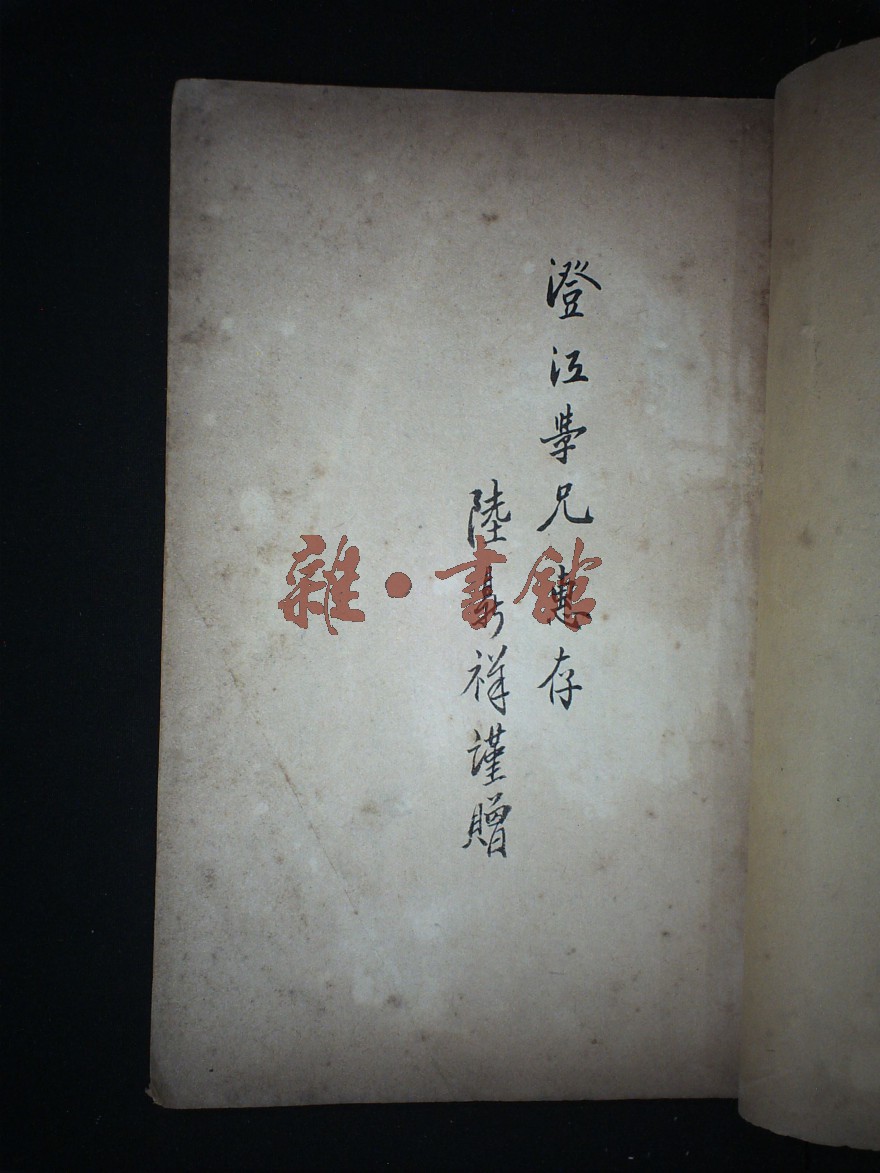 澄江學兄惠存
陸 祥謹贈
雜·書館